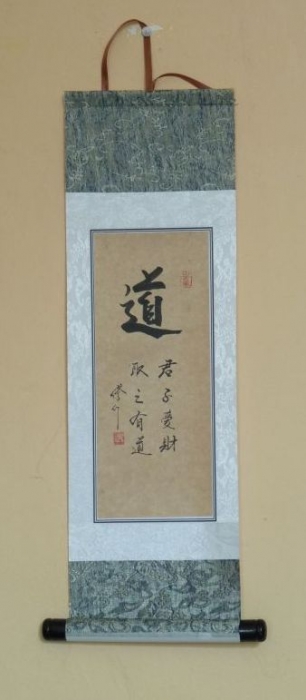 道
君子愛財
取之有道